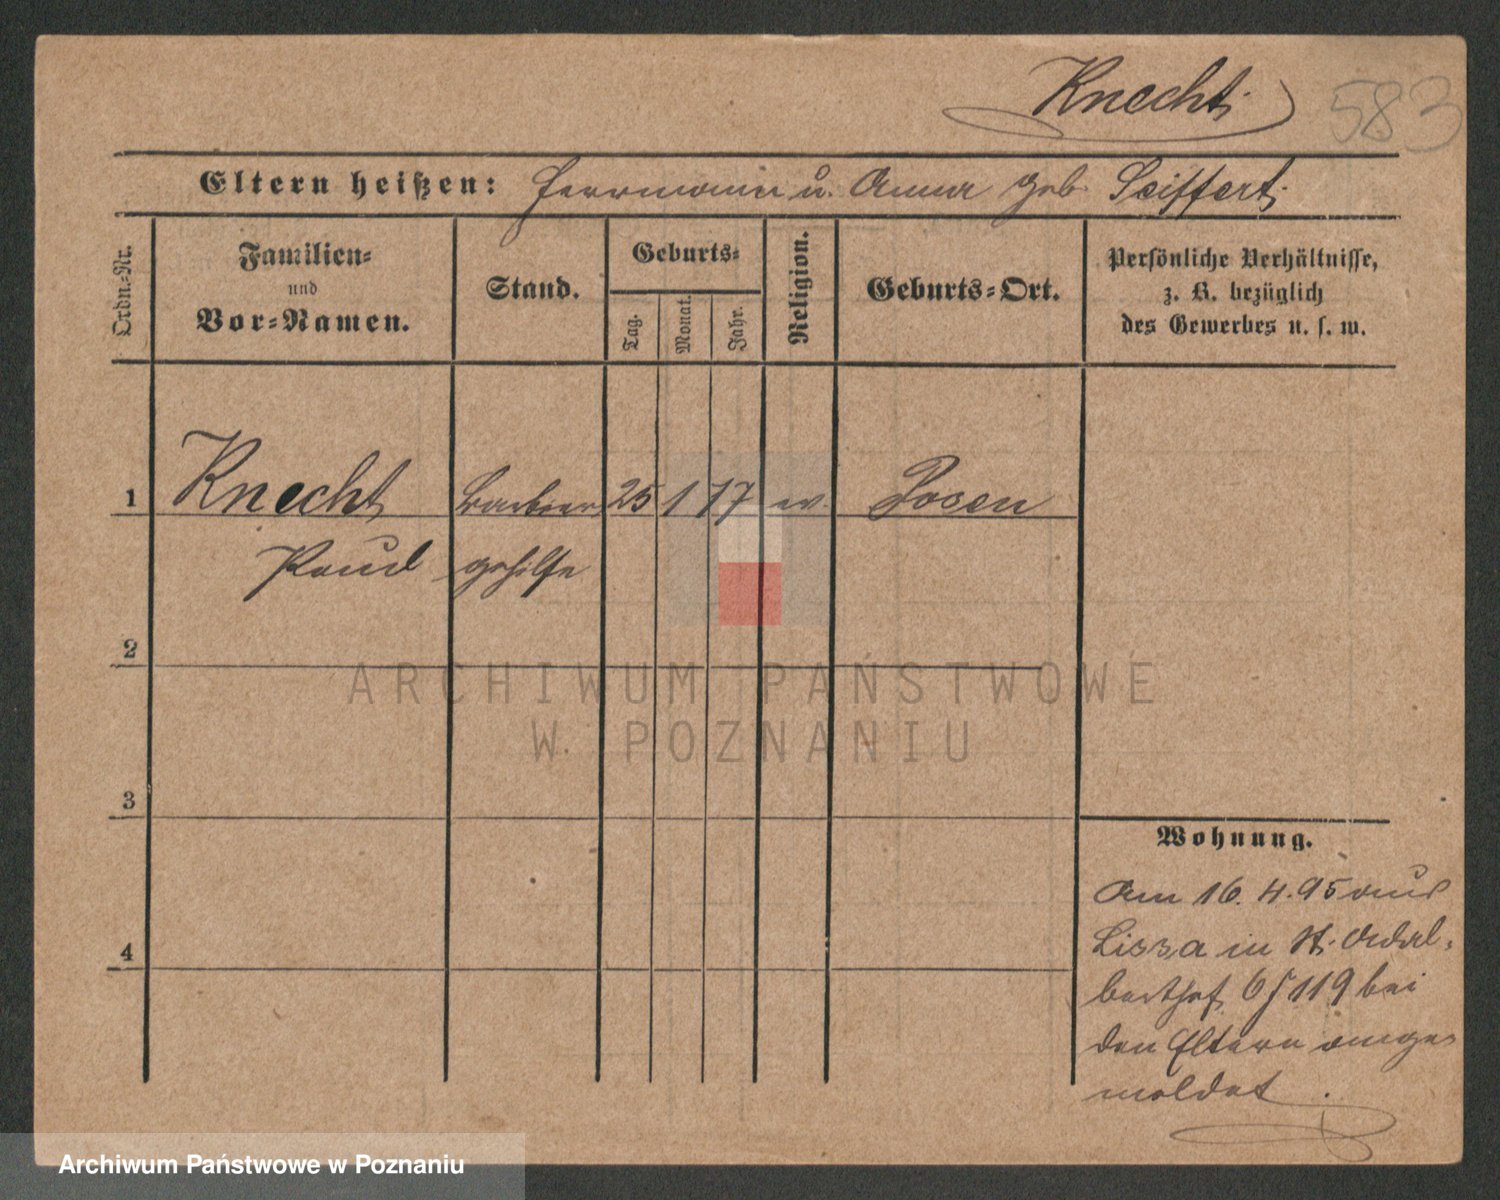 Knecht.
583
Eltern heißen: Herrmann u. Anna geb. Seiffert.
Ordn.-Nr.
Familien-
und
Vor-Namen.
Stand.
Geburts-
Tag.
Monat.
Jahr.
Religion.
Geburts-Ort.
Persönliche Verhältnisse,
z. B. bezüglich
des Gewerbes u. s. w.
1 Knecht Barbier 25 1 77 ev. Posen
Paul gehilfe
2
3
4
Wohnung.
Am 16. 4. 95 aus
Lissa in St. Adal-
berthof 6/119 bei
den Eltern ange-
meldet.
ARCHIWUM PAŃSTWOWE
W POZNANIU
Archiwum Państwowe w Poznaniu